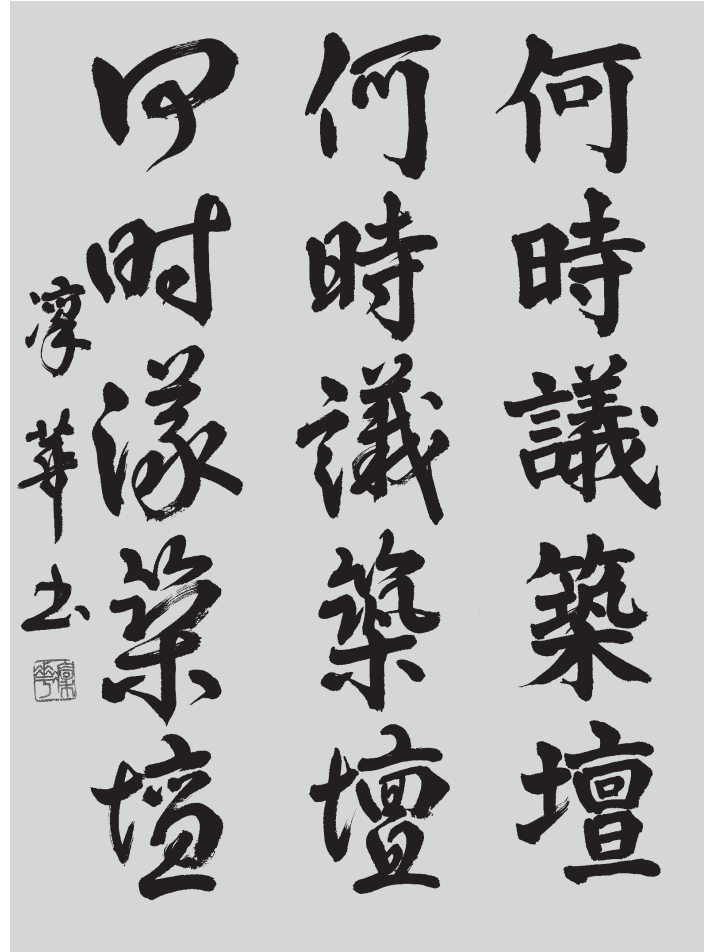 何時議築壇
何時議築壇
何時議築壇
凛華書